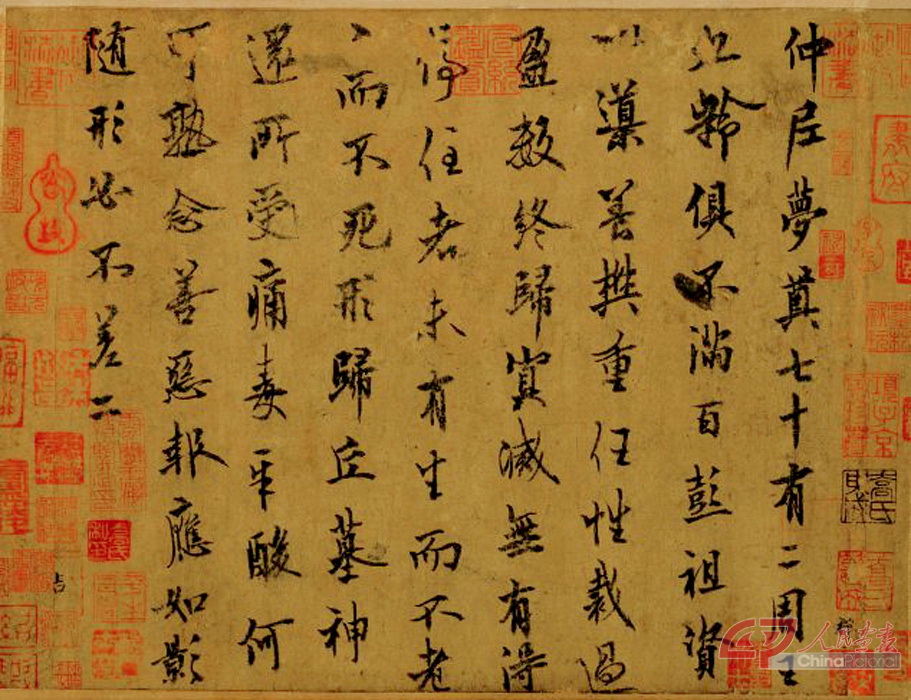 仲尼夢奠七十有二周王
九齡俱不滿百彭祖資
以導養樊重任性裁過
盈數終歸冥滅無有得
停住者未有生而不老
〻而不死形歸丘墓神
還所受痛毒辛酸何
可熟念善惡報應如影
隨形必不差二
人民画报
ChinaPictorial